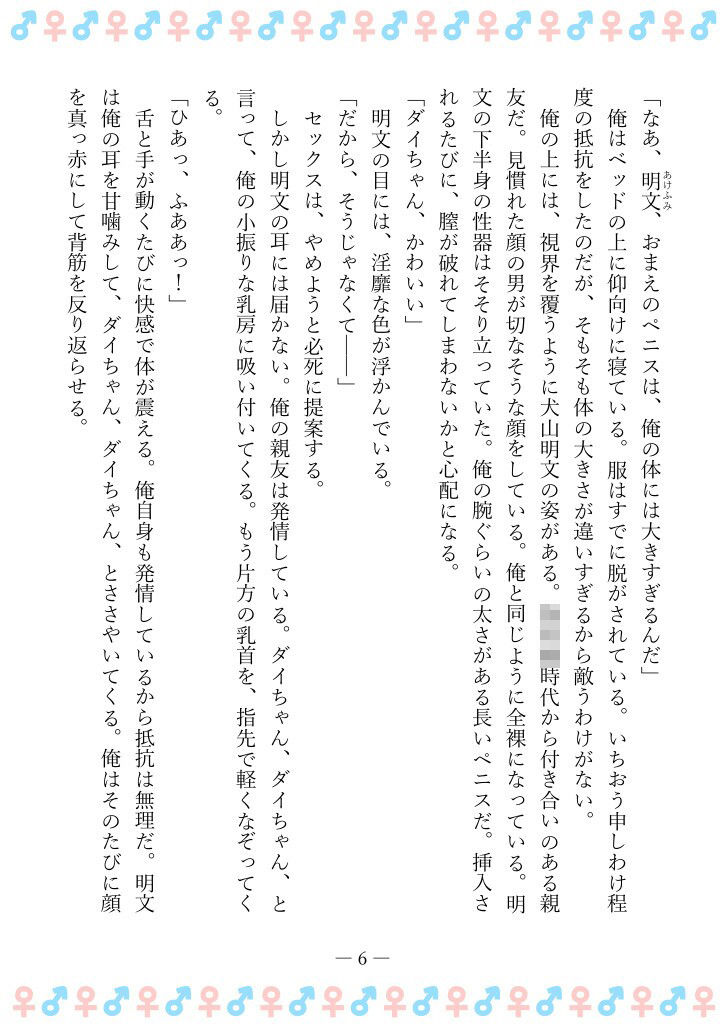 「なあ、明文、おまえのペニスは、俺の体には大きすぎるんだ」
あけふみ
俺はベッドの上に仰向けに寝ている。服はすでに脱がされている。いちおう申しわけ程
度の抵抗をしたのだが、そもそも体の大きさが違いすぎるから敵うわけがない。
俺の上には、視界を覆うように犬山明文の姿がある。時代から付き合いのある親
友だ。見慣れた顔の男が切なそうな顔をしている。俺と同じように全裸になっている。明
文の下半身の性器はそそり立っていた。俺の腕ぐらいの太さがある長いペニスだ。挿入さ
れるたびに、膣が破れてしまわないかと心配になる。
「ダイちゃん、かわいい」
明文の目には、淫靡な色が浮かんでいる。
「だから、そうじゃなくて――」
セックスは、やめようと必死に提案する。
しかし明文の耳には届かない。俺の親友は発情している。ダイちゃん、ダイちゃん、と
言って、俺の小振りな乳房に吸い付いてくる。もう片方の乳首を、指先で軽くなぞってく
る。
「ひあっ、ふああっ！」
舌と手が動くたびに快感で体が震える。俺自身も発情しているから抵抗は無理だ。明文
は俺の耳を甘噛みして、ダイちゃん、ダイちゃん、とささやいてくる。俺はそのたびに顔
を真っ赤にして背筋を反り返らせる。
― 6 ―